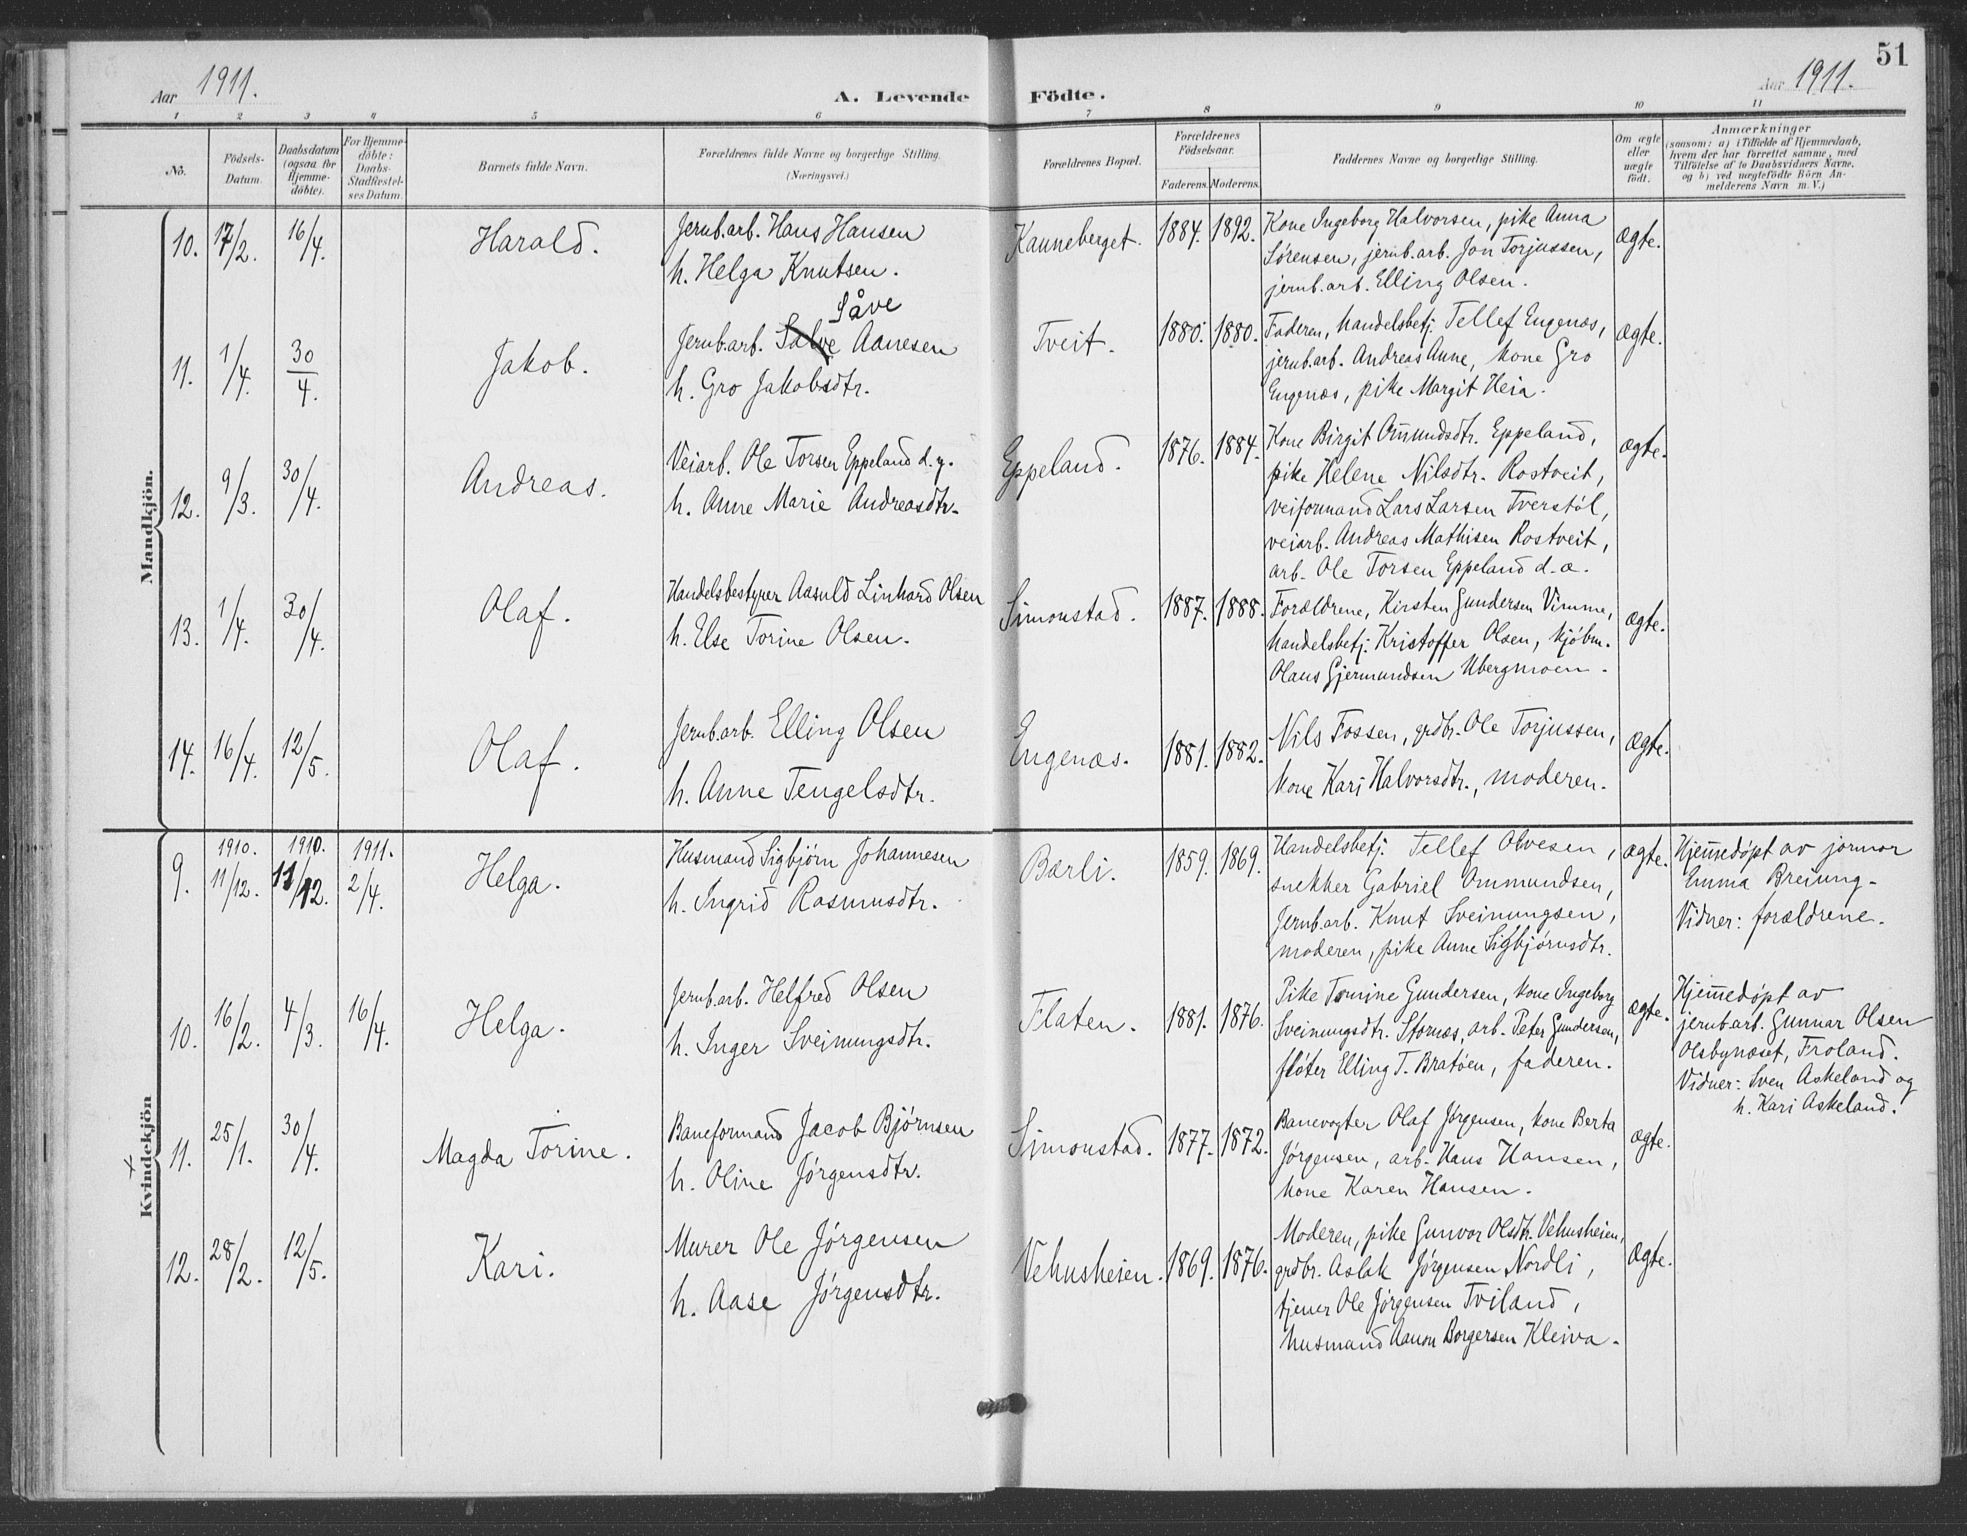 51
Aar 1911.
A. Levende Födte.
Aar 1911.
1 2 3 4 5 6 7 8 9 10 11
No.
Födsels-
Datum.
Daabsdatum
(ogsaa for
Hjemme-
döbte).
For Hjemme-
döbte:
Daabs-
Stadfæstel-
ses Datum.
Barnets fulde Navn.
Forældrenes fulde Navne og borgerlige Stilling.
(Næringsvei.)
Forældrenes Bopæl.
Forældrenes
Födselsaar.
Faderens. Moderens.
Faddernes Navne og borgerlige Stilling.
Om ægte
eller
uægte
födt.
Anmærkninger
(saasom: a) i Tilfælde af Hjemmedaab,
hvem der har forrettet samme, med
Tilföielse af to Daabsvidners Navne,
og b) ved uægtefödte Börn An-
melderens Navn m. V.)
Mandkjön.
10. 17/2. 16/4. Harald.
Jernb.arb. Hans Hansen
h. Helga Knutsen.
Kanneberget. 1884. 1892.
Kone Ingeborg Halvorsen, pike Anna
Sørensen, jernb.arb. Jon Torjussen,
jernb.arb. Elling Olsen.
ægte.
11. 1/4. 30/4. Jakob.
Såve
Jernb.arb. Salve Aanesen
h. Gro Jakobsdtr.
Tveit. 1880. 1880.
Faderen, handelsbetj. Tellef Engenæs,
jernb.arb. Andreas Aane, kone Gro
Engenæs, pike Margit Heia.
ægte.
12. 9/3. 30/4. Andreas.
Veiarb. Ole Torsen Eppeland d.y.
h. Anne Marie Andreasdtr.
Eppeland. 1876. 1884.
Kone Birgit Omundsdtr. Eppeland,
pike Helene Nilsdtr. Rostveit,
veiformand Lars Larsen Tverstøl,
veiarb. Andreas Mathisen Rostveit,
arb. Ole Torsen Eppeland d.æ.
ægte.
13. 1/4. 30/4. Olaf.
Handelsbestyrer Aasuld Linhard Olsen
h. Else Torine Olsen.
Simonstad. 1887. 1888.
Forældrene, Kirsten Gundersen Vimme,
handelsbetj. Kristoffer Olsen, kjøbm.
Olaus Gjermundsen Ubergmoen.
ægte.
14. 16/4. 12/5. Olaf.
Jernb.arb. Elling Olsen
h. Anne Tengelsdtr.
Engenæs. 1881. 1882.
Nils Fossen, grdbr. Ole Torjussen,
kone Kari Halvorsdtr., moderen.
ægte.
Kvindekjön
9. 1910. 11/12. 1910. 11/12. 1911. 2/4. Helga.
Husmand Sigbjørn Johannesen
h. Ingrid Rasmusdtr.
Bærli. 1859. 1869.
Handelsbetj. Tellef Olvesen,
snekker Gabriel Ommundsen,
Jernb.arb. Knut Sveinungsen,
moderen, pike Anne Sigbjørnsdtr.
ægte.
Hjemmedøpt av jormor
Emma Breiung.
Vidner: forældrene.
10. 16/2. 4/3. 16/4. Helga.
Jernb.arb. Helfred Olsen
h. Inger Sveinungsdtr.
Flaten. 1881. 1876.
Pike Tomine Gundersen, kone Ingeborg
Sveinungsdtr. Stornæs, arb. Peter Gundersen,
fløter Elling T. Bratøen, faderen.
ægte.
Hjemmedøpt av
jernb.arb. Gunnar Olsen
Olsbynæset, Froland.
Vidner: Sven Askeland og
h. Kari Askeland.
11. 25/1. 30/4. Magda Torine.
Baneformand Jacob Bjørnsen
h. Oline Jørgensdtr.
Simonstad. 1877. 1872.
Banevogter Olaf Jørgensen, kone Berta
Jørgensen, arb. Hans Hansen,
kone Karen Hansen.
ægte.
12. 28/2. 12/5. Kari.
Murer Ole Jørgensen
h. Aase Jørgensdtr.
Vehusheien. 1869. 1876.
Moderen, pike Gunvor Olsdtr. Vehusheien,
grdbr. Aslak Jørgensen Nordli,
tjener Ole Jørgensen Tviland,
husmand Aanon Borgersen Kleiva.
ægte.